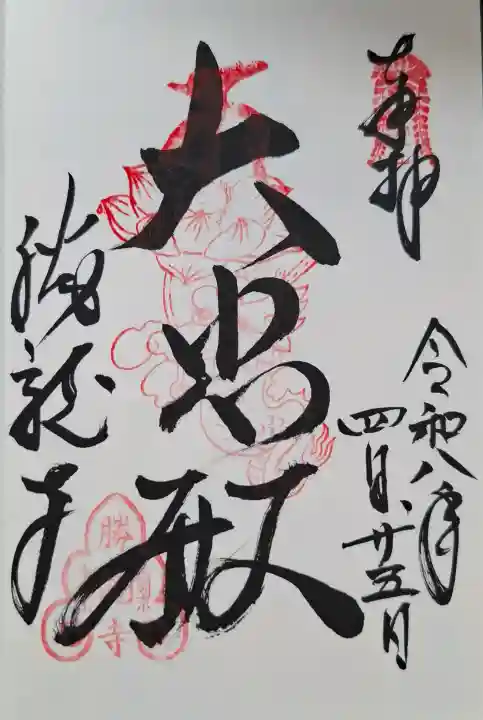 奉拝
令和八年
四月廿五日
大悲殿
勝龍寺